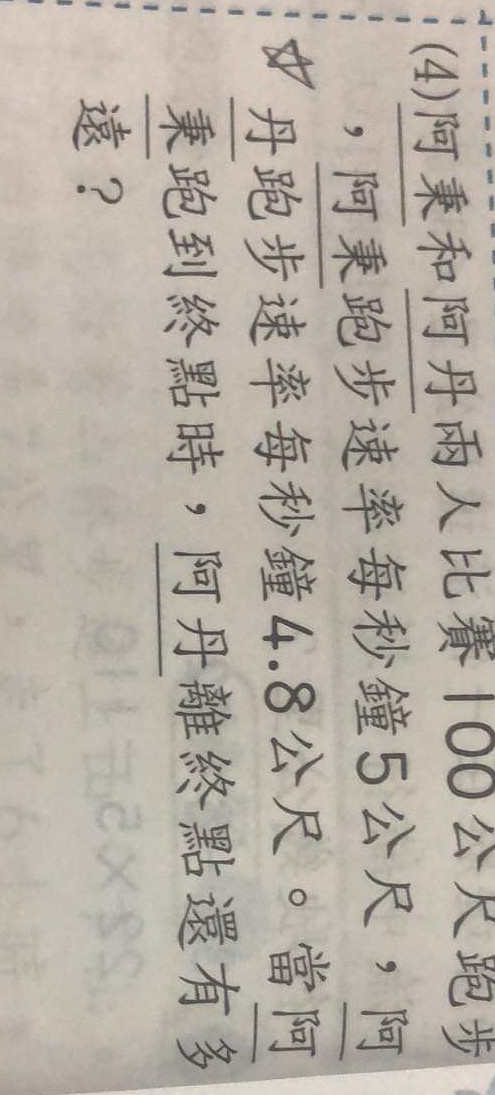 (4)阿秉和阿丹兩人比賽100公尺跑步
，阿秉跑步速率每秒鐘5公尺，阿
丹跑步速率每秒鐘4.8公尺。當阿
秉跑到終點時，阿丹離終點還有多
遠？